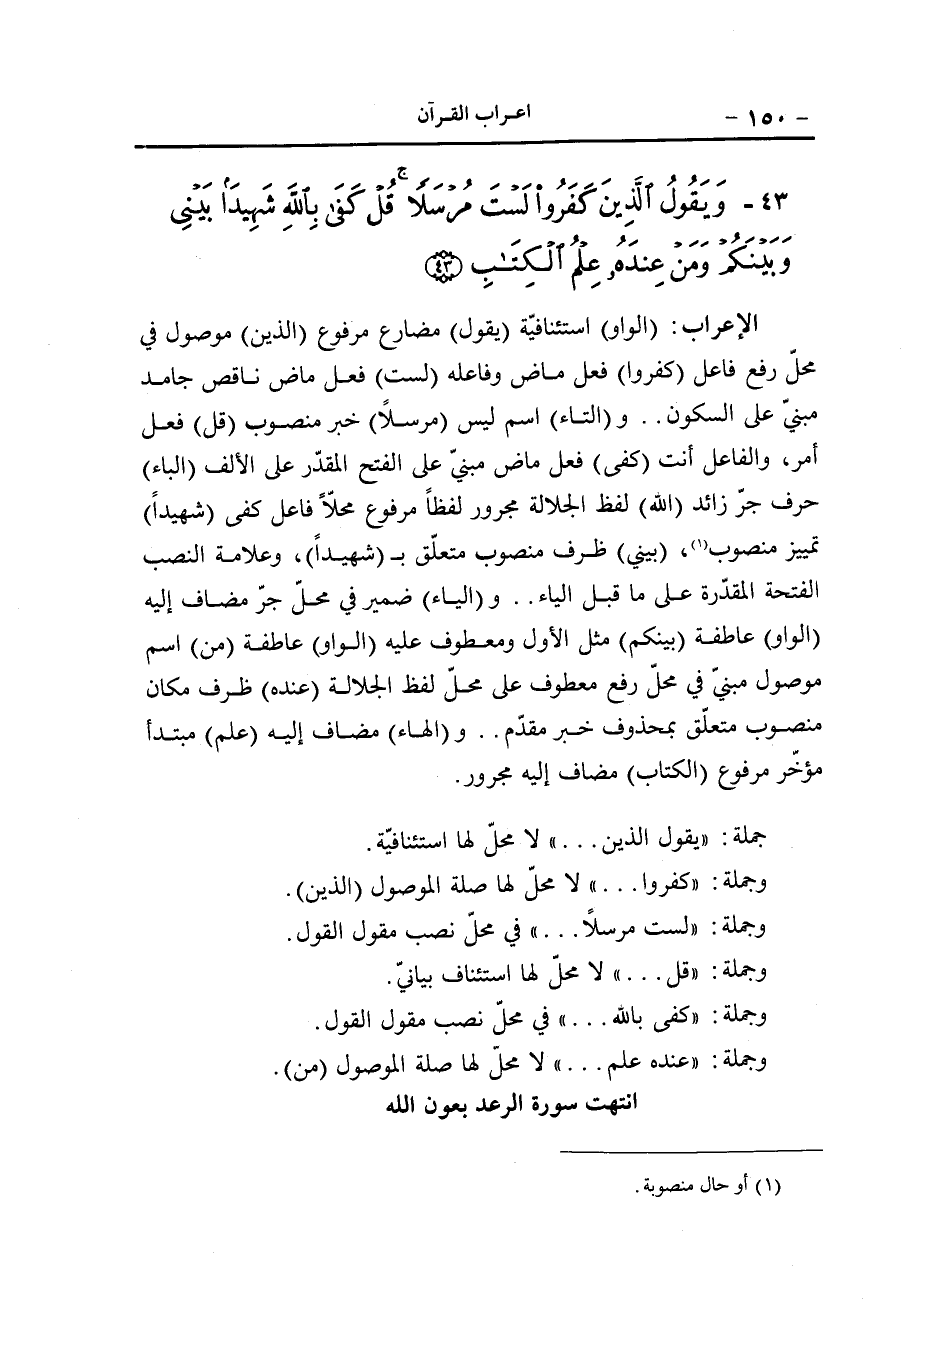 - ١٥٠ -
اعراب القرآن
٤٣ - وَيَقُولُ ٱلَّذِينَ كَفَرُوا۟ لَسْتَ مُرْسَلًا ۚ قُلْ كَفَىٰ بِٱللَّهِ شَهِيدًۢا بَيْنِى
وَبَيْنَكُمْ وَمَنْ عِندَهُۥ عِلْمُ ٱلْكِتَـٰبِ ﴿٤٣﴾
الإعراب: (الواو) استئنافيّة (يقول) مضارع مرفوع (الذين) موصول في
محلّ رفع فاعل (كفروا) فعل ماض وفاعله (لست) فعل ماض ناقص جامد
مبنيّ على السكون.. و(التاء) اسم ليس (مرسلاً) خبر منصوب (قل) فعل
أمر، والفاعل أنت (كفى) فعل ماض مبنيّ على الفتح المقدّر على الألف (الباء)
حرف جرّ زائد (الله) لفظ الجلالة مجرور لفظاً مرفوع محلّاً فاعل كفى (شهيداً)
تمييز منصوب(١)، (بيني) ظرف منصوب متعلّق بـ (شهيداً)، وعلامة النصب
الفتحة المقدّرة على ما قبل الياء.. و(الياء) ضمير في محلّ جرّ مضاف إليه
(الواو) عاطفة (بينكم) مثل الأول ومعطوف عليه (الواو) عاطفة (من) اسم
موصول مبنيّ في محلّ رفع معطوف على محلّ لفظ الجلالة (عنده) ظرف مكان
منصوب متعلّق بمحذوف خبر مقدّم.. و(الهاء) مضاف إليه (علم) مبتدأ
مؤخّر مرفوع (الكتاب) مضاف إليه مجرور.
جملة: «يقول الذين...» لا محلّ لها استئنافيّة.
وجملة: «كفروا...» لا محلّ لها صلة الموصول (الذين).
وجملة: «لست مرسلاً...» في محلّ نصب مقول القول.
وجملة: «قل...» لا محلّ لها استئناف بيانيّ.
وجملة: «كفى بالله...» في محلّ نصب مقول القول.
وجملة: «عنده علم...» لا محلّ لها صلة الموصول (من).
انتهت سورة الرعد بعون الله
(١) أو حال منصوبة.